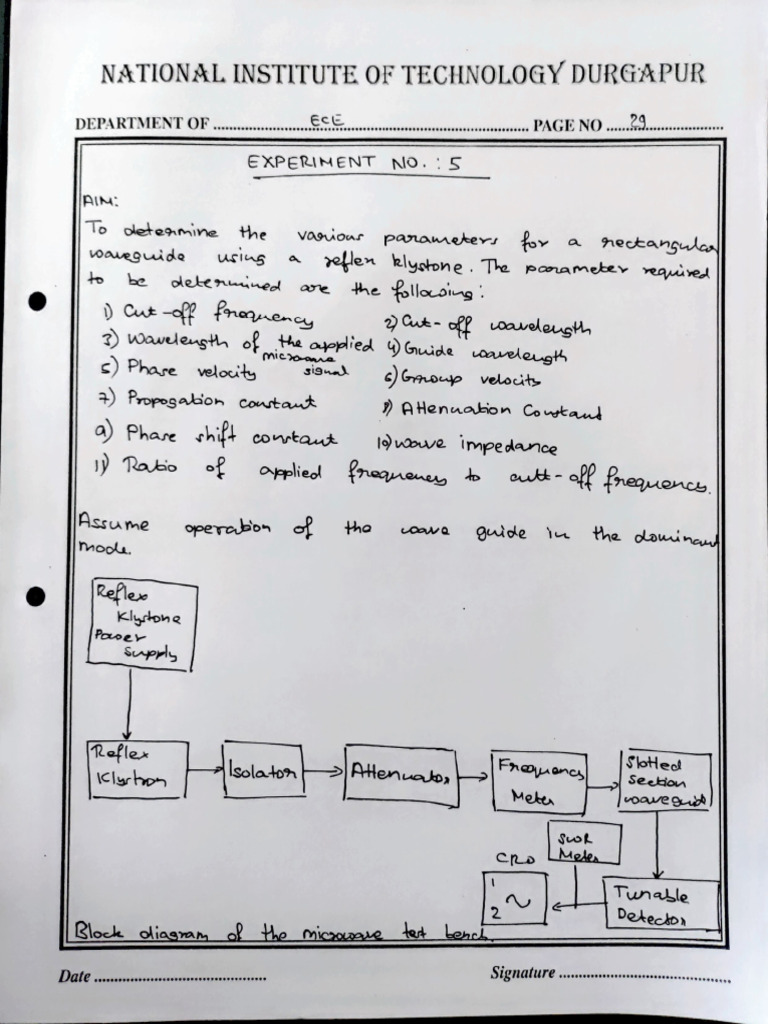 NATIONAL INSTITUTE OF TECHNOLOGY DURGAPUR
DEPARTMENT OF ECE PAGE NO 29
EXPERIMENT NO. : 5
AIM:
To determine the various parameters for a rectangular
waveguide using a reflex klystone. The parameter required
to be determined are the following:
1) Cut-off frequency 2) Cut-off wavelength
3) Wavelength of the applied microwave signal 4) Guide wavelength
5) Phase velocity 6) Group velocity
7) Propogation constant 8) Attenuation Constant
9) Phase shift constant 10) wave impedance
11) Ratio of applied frequency to cutt-off frequency.
Assume operation of the wave guide in the dominant
mode.
Reflex
Klystone
Power
Supply
Reflex
Klystron
Isolator
Attenuator
Frequency
Meter
Slotted
section
waveguide
SWR
Meter
CRO
1
2
Tunable
Detector
Block diagram of the microwave test bench.
Date Signature